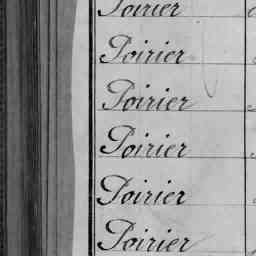 Poirier
Poirier
Poirier
Poirier
Poirier
Poirier